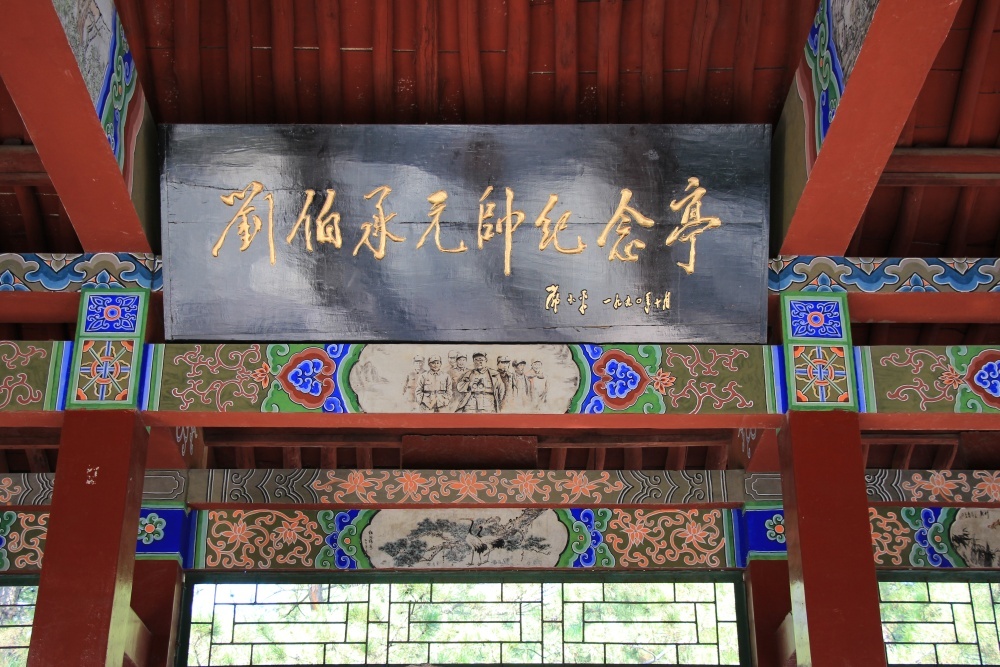 劉伯承元帥纪念亭
一九九〇年十月